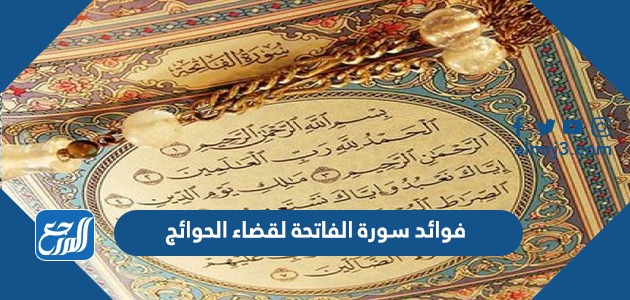 سورة الفاتحة
بِسْمِ اللَّهِ الرَّحْمَٰنِ الرَّحِيمِ ١
الْحَمْدُ لِلَّهِ رَبِّ الْعَالَمِينَ ٢
الرَّحْمَٰنِ الرَّحِيمِ ٣ مَالِكِ يَوْمِ الدِّينِ ٤
إِيَّاكَ نَعْبُدُ وَإِيَّاكَ
الصِّرَاطَ
عَلَيْهِمْ
الضَّالِّينَ ٧
almrj3.com
فوائد سورة الفاتحة لقضاء الحوائج
المرجع